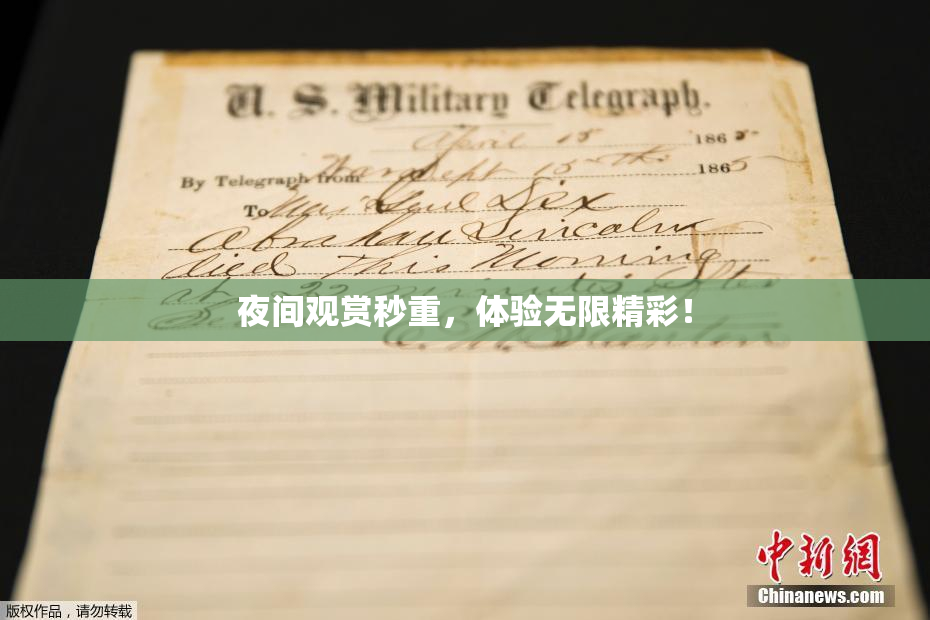 U. S. Military Telegraph.
April 15 1865-
By Telegraph from War Dept 15th 1865
To Maj Genl Dix
Abraham Lincoln
died This Morning
at 22 minutes after
夜间观赏秒重，体验无限精彩！
E. M. Stanton
中新网
Chinanews.com
版权作品，请勿转载